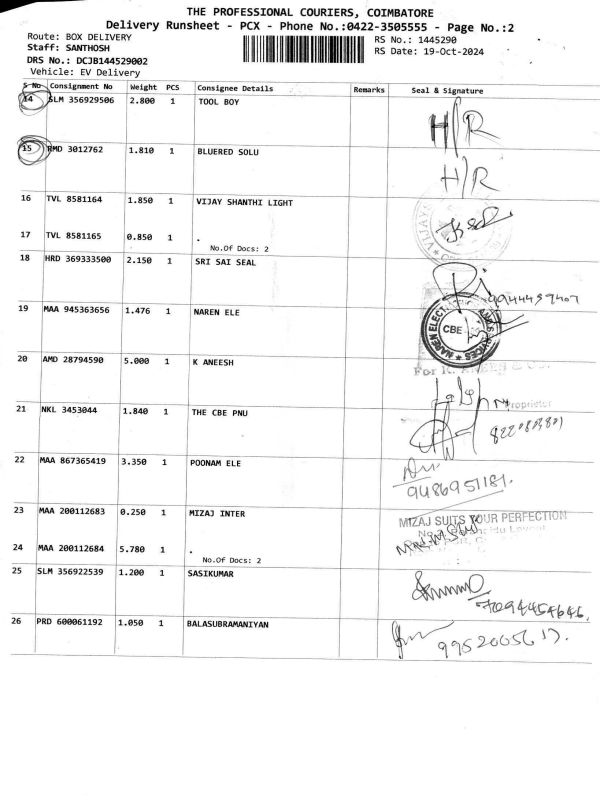 THE PROFESSIONAL COURIERS, COIMBATORE
Delivery Runsheet - PCX - Phone No.:0422-3505555 - Page No.:2
Route: BOX DELIVERY
RS No.: 1445290
Staff: SANTHOSH
RS Date: 19-Oct-2024
DRS No.: DCJB144529002
Vehicle: EV Delivery
S No Consignment No Weight PCS Consignee Details Remarks Seal & Signature
14 SLM 356929506 2.800 1 TOOL BOY
H/R
15 RMD 3012762 1.810 1 BLUERED SOLU
H/R
16 TVL 8581164 1.850 1 VIJAY SHANTHI LIGHT
17 TVL 8581165 0.850 1 .
No.Of Docs: 2
18 HRD 369333500 2.150 1 SRI SAI SEAL
9944459407
19 MAA 945363656 1.476 1 NAREN ELE
NAREN ELECT
CBE
20 AMD 28794590 5.000 1 K ANEESH
For K.
Proprietor
21 NKL 3453044 1.840 1 THE CBE PNU
22 MAA 867365419 3.350 1 POONAM ELE
9486951181.
23 MAA 200112683 0.250 1 MIZAJ INTER
MIZAJ SUITS YOUR PERFECTION
24 MAA 200112684 5.780 1 .
No.Of Docs: 2
25 SLM 356922539 1.200 1 SASIKUMAR
7094454646.
26 PRD 600061192 1.050 1 BALASUBRAMANIYAN